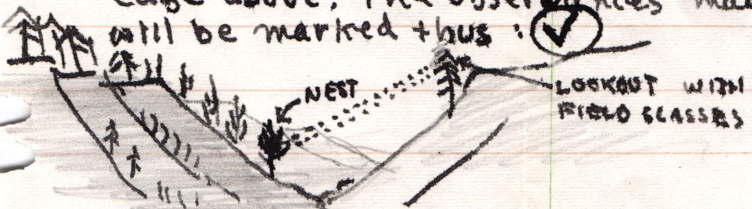 above. The
will be marked thus: ✓
NEST
LOOKOUT WITH
FIELD GLASSES